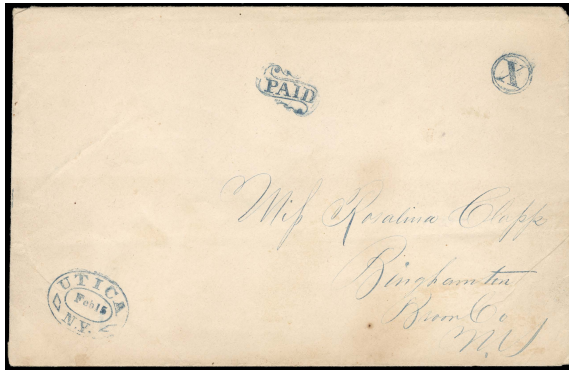 PAID
X
Miss Rosalina Clapp
Binghamton
Broom Co
N.Y
UTICA
Feb 15
N.Y.